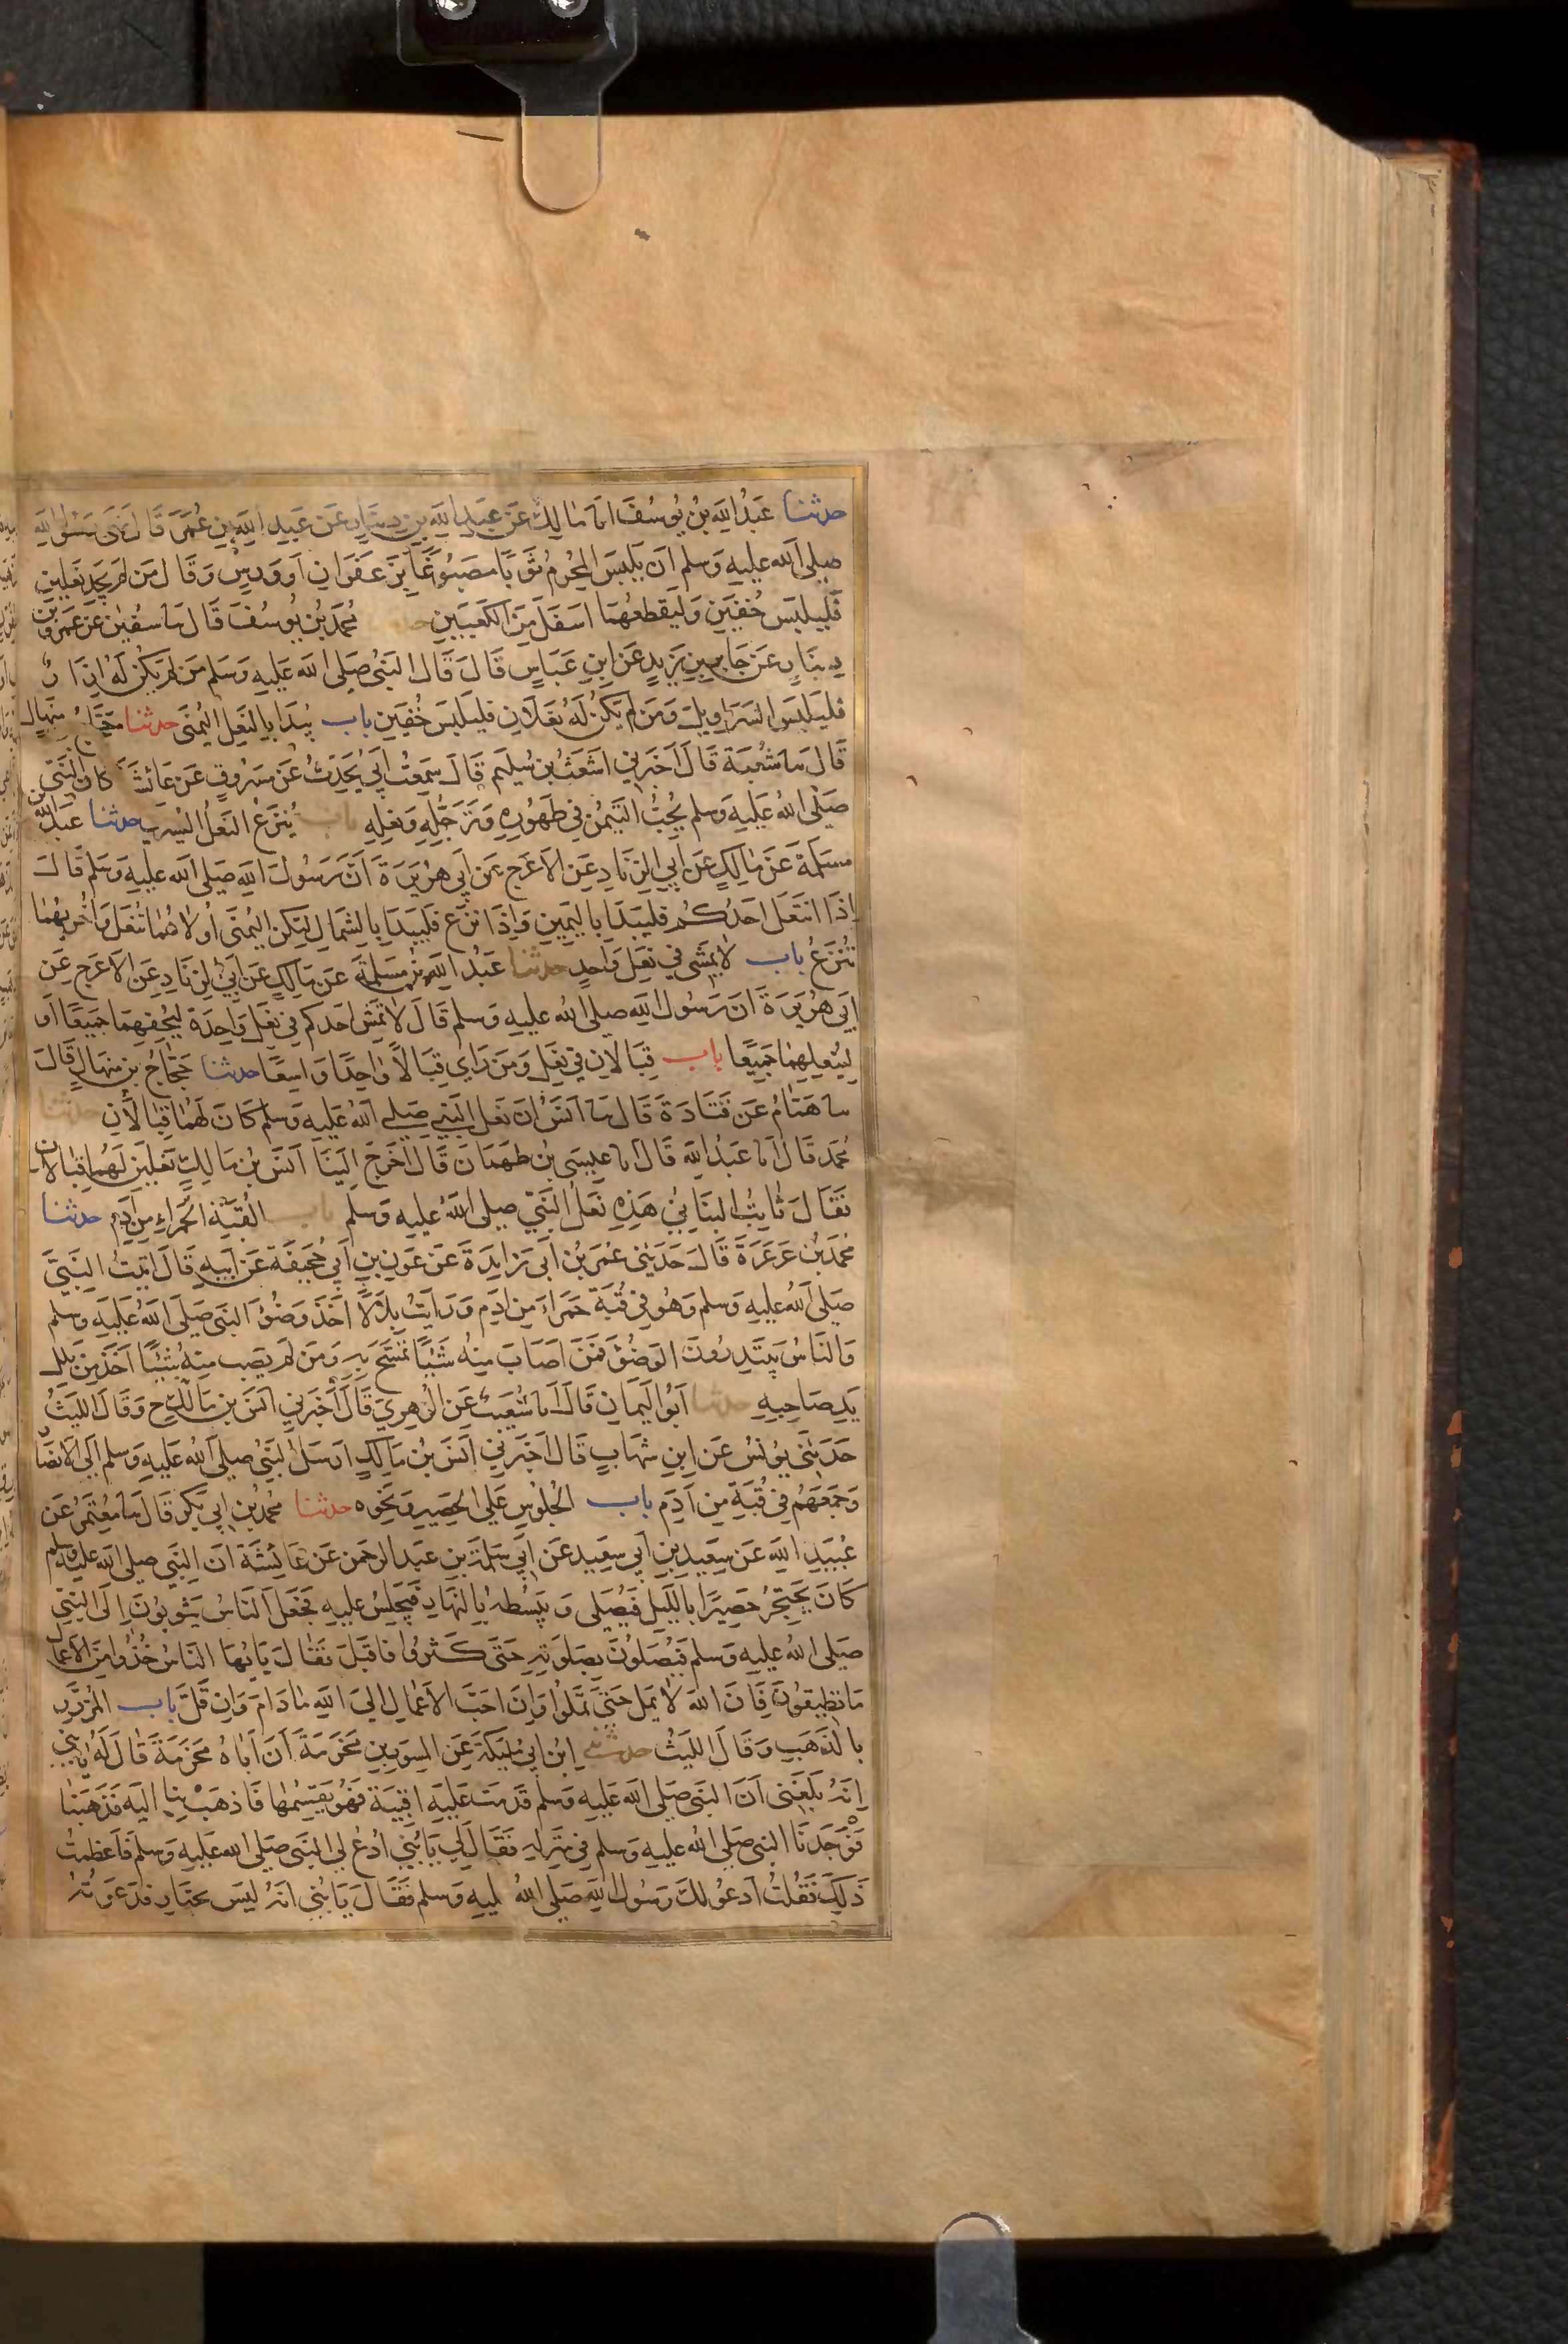 حدثنا عَبْدُ اللهِ بْنُ يُوسُفَ انا مَالِكٌ عَنْ عَبْدِ اللهِ بْنِ دِينَارٍ عَنْ عَبْدِ اللهِ بْنِ عُمَرَ قَالَ نَهَى رَسُولُ اللهِ
صلى الله عليه وسلم اَنْ يَلْبَسَ المُحْرِمُ ثَوْبًا مَصْبُوغًا بِزَعْفَرَانٍ اَوْ وَرْسٍ وَقَالَ مَنْ لَمْ يَجِدْ نَعْلَيْنِ
فَلْيَلْبَسْ خُفَّيْنِ وَلْيَقْطَعْهُمَا اَسْفَلَ مِنَ الكَعْبَيْنِ حدثنا مُحَمَّدُ بْنُ يُوسُفَ قَالَ نا سُفْيٰنُ عَنْ عَمْرِو بْنِ
دِينَارٍ عَنْ جَابِرِ بْنِ زَيْدٍ عَنِ ابْنِ عَبَّاسٍ قَالَ قَالَ النَّبِيُّ صلى الله عليه وسلم مَنْ لَمْ يَكُنْ لَهُ اِزَارٌ
فَلْيَلْبَسِ السَّرَاوِيلَ وَمَنْ لَمْ يَكُنْ لَهُ نَعْلَانِ فَلْيَلْبَسْ خُفَّيْنِ باب يَبْدَا بِالنَّعْلِ اليُمْنَى حدثنا حَجَّاجُ بْنُ مِنْهَالٍ
قَالَ نا شُعْبَةُ قَالَ اَخْبَرَنِي اَشْعَثُ بْنُ سُلَيْمٍ قَالَ سَمِعْتُ اَبِي يُحَدِّثُ عَنْ مَسْرُوقٍ عَنْ عَائِشَةَ كَانَ النَّبِيُّ
صلى الله عليه وسلم يُحِبُّ التَّيَمُّنَ فِي طُهُورِهِ وَتَرَجُّلِهِ وَنَعْلِهِ باب يُنْزَعُ النَّعْلُ اليُسْرَى حدثنا عَبْدُ اللهِ بْنُ
مَسْلَمَةَ عَنْ مَالِكٍ عَنْ اَبِي الزِّنَادِ عَنِ الاَعْرَجِ عَنْ اَبِي هُرَيْرَةَ اَنَّ رَسُولَ اللهِ صلى الله عليه وسلم قَالَ
اِذَا انْتَعَلَ اَحَدُكُمْ فَلْيَبْدَا بِاليَمِينِ وَاِذَا نَزَعَ فَلْيَبْدَا بِالشِّمَالِ لِتَكُنِ اليُمْنَى اُولَاهُمَا تُنْعَلُ وَاُخْرَيهُمَا
تُنْزَعُ باب لَا يَمْشِي فِي نَعْلٍ وَاحِدٍ حدثنا عَبْدُ اللهِ بْنُ مَسْلَمَةَ عَنْ مَالِكٍ عَنْ اَبِي الزِّنَادِ عَنِ الاَعْرَجِ عَنْ
اَبِي هُرَيْرَةَ اَنَّ رَسُولَ اللهِ صلى الله عليه وسلم قَالَ لَا يَمْشِ اَحَدُكُمْ فِي نَعْلٍ وَاحِدَةٍ لِيُحْفِهِمَا جَمِيعًا اَوْ
لِيُنْعِلْهِمَا جَمِيعًا باب قِبَالَانِ فِي نَعْلٍ وَمَنْ رَاى قِبَالًا وَاحِدًا وَاسِعًا حدثنا حَجَّاجُ بْنُ مِنْهَالٍ قَالَ
نا هَمَّامٌ عَنْ قَتَادَةَ قَالَ نا اَنَسٌ اَنَّ نَعْلَ النَّبِيِّ صلى الله عليه وسلم كَانَ لَهُمَا قِبَالَانِ حدثنا
مُحَمَّدٌ قَالَ انا عَبْدُ اللهِ قَالَ انا عِيسَى بْنُ طَهْمَانَ قَالَ اَخْرَجَ اِلَيْنَا اَنَسُ بْنُ مَالِكٍ نَعْلَيْنِ لَهُمَا قِبَالَانِ
فَقَالَ ثَابِتٌ البُنَانِيُّ هَذِهِ نَعْلُ النَّبِيِّ صلى الله عليه وسلم باب القُبَّةِ الحَمْرَاءِ مِنْ اَدَمٍ حدثنا
مُحَمَّدُ بْنُ عَرْعَرَةَ قَالَ حَدَّثَنِي عُمَرُ بْنُ اَبِي زَايِدَةَ عَنْ عَوْنِ بْنِ اَبِي جُحَيْفَةَ عَنْ اَبِيهِ قَالَ اَتَيْتُ النَّبِيَّ
صلى الله عليه وسلم وَهُوَ فِي قُبَّةٍ حَمْرَاءَ مِنْ اَدَمٍ وَرَاَيْتُ بِلَالًا اَخَذَ وَضُوْءَ النَّبِيِّ صلى الله عليه وسلم
وَالنَّاسُ يَبْتَدِرُونَ الوَضُوْءَ فَمَنْ اَصَابَ مِنْهُ شَيْئًا تَمَسَّحَ بِهِ وَمَنْ لَمْ يُصِبْ مِنْهُ شَيْئًا اَخَذَ مِنْ بَلَلِ
يَدِ صَاحِبِهِ حدثنا اَبُو اليَمَانِ قَالَ انا شُعَيْبٌ عَنِ الزُّهْرِيِّ قَالَ اَخْبَرَنِي اَنَسُ بْنُ مَالِكٍ ح وَقَالَ اللَّيْثُ
حَدَّثَنِي يُونُسُ عَنِ ابْنِ شِهَابٍ قَالَ اَخْبَرَنِي اَنَسُ بْنُ مَالِكٍ اَرْسَلَ النَّبِيُّ صلى الله عليه وسلم اِلَى الاَنْصَارِ
وَجَمَعَهُمْ فِي قُبَّةٍ مِنْ اَدَمٍ باب الجُلُوسِ عَلَى الحَصِيرِ وَنَحْوِهِ حدثنا مُحَمَّدُ بْنُ اَبِي بَكْرٍ قَالَ نا مُعْتَمِرٌ عَنْ
عُبَيْدِ اللهِ عَنْ سَعِيدِ بْنِ اَبِي سَعِيدٍ عَنْ اَبِي سَلَمَةَ بْنِ عَبْدِ الرَّحْمٰنِ عَنْ عَائِشَةَ اَنَّ النَّبِيَّ صلى الله عليه وسلم
كَانَ يَحْتَجِرُ حَصِيرًا بِاللَّيْلِ فَيُصَلِّي وَيَبْسُطُهُ بِالنَّهَارِ فَيَجْلِسُ عَلَيْهِ فَجَعَلَ النَّاسُ يَثُوبُونَ اِلَى النَّبِيِّ
صلى الله عليه وسلم فَيُصَلُّونَ بِصَلَوتِهِ حَتَّى كَثُرُوا فَاَقْبَلَ فَقَالَ يَا اَيُّهَا النَّاسُ خُذُوا مِنَ الاَعْمَالِ
مَا تُطِيقُونَ فَاِنَّ اللهَ لَا يَمَلُّ حَتَّى تَمَلُّوا وَاِنَّ اَحَبَّ الاَعْمَالِ اِلَى اللهِ مَا دَامَ وَاِنْ قَلَّ باب المُزَرَّرِ
بِالذَّهَبِ وَقَالَ اللَّيْثُ حدثني ابْنُ اَبِي مُلَيْكَةَ عَنِ المِسْوَرِ بْنِ مَخْرَمَةَ اَنَّ اَبَاهُ مَخْرَمَةَ قَالَ لَهُ يَا بُنَيَّ
اِنَّهُ بَلَغَنِي اَنَّ النَّبِيَّ صلى الله عليه وسلم قَدِمَتْ عَلَيْهِ اَقْبِيَةٌ فَهُوَ يَقْسِمُهَا فَاذْهَبْ بِنَا اِلَيْهِ فَذَهَبْنَا
فَوَجَدْنَا النَّبِيَّ صلى الله عليه وسلم فِي مَنْزِلِهِ فَقَالَ لِي يَا بُنَيَّ ادْعُ لِي النَّبِيَّ صلى الله عليه وسلم فَاَعْظَمْتُ
ذَلِكَ فَقُلْتُ اَدْعُو لَكَ رَسُولَ اللهِ صلى الله ليه وسلم فَقَالَ يَا بُنَيَّ اِنَّهُ لَيْسَ بِجَبَّارٍ فَدَعَوْتُهُ